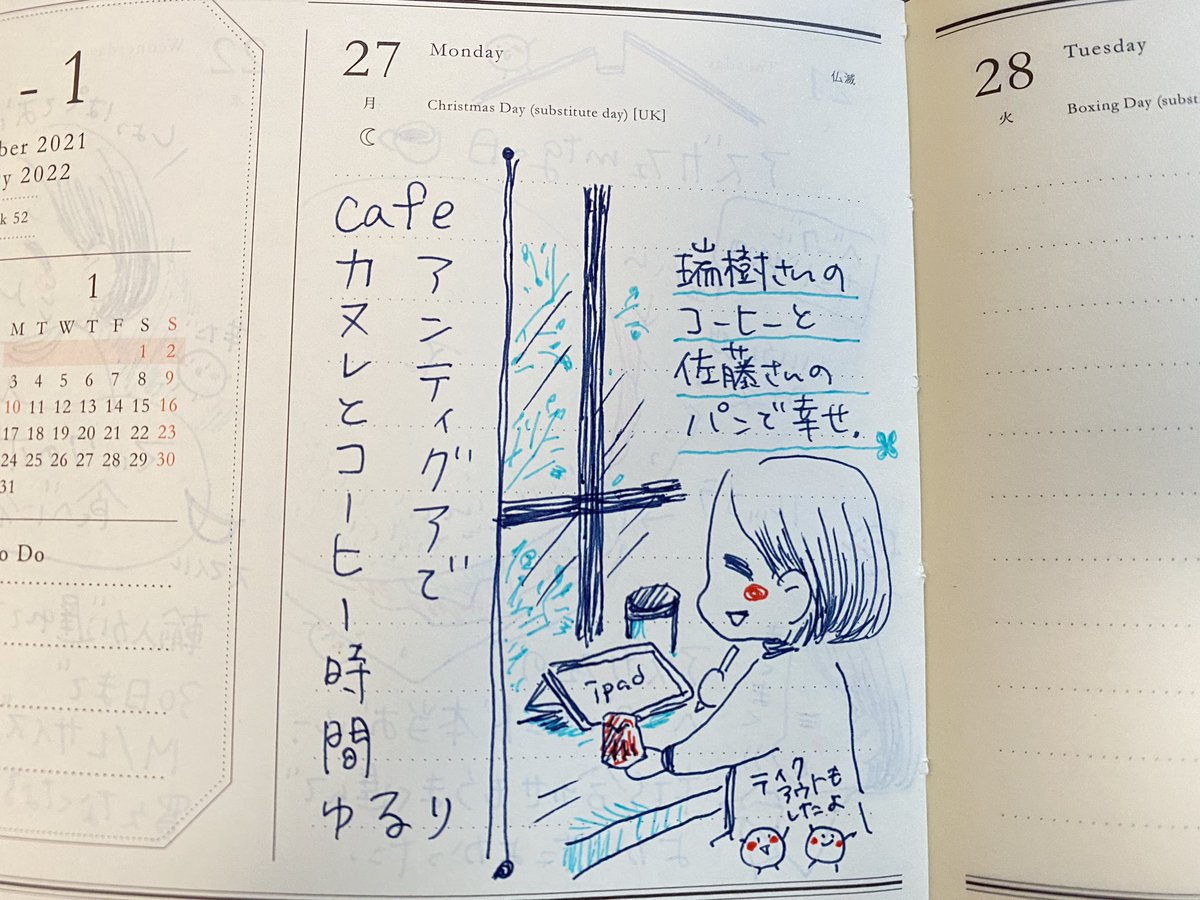 - 1
ber 2021
y 2022
k 52
1
M T W T F S S
1 2
3 4 5 6 7 8 9
10 11 12 13 14 15 16
17 18 19 20 21 22 23
24 25 26 27 28 29 30
31
o Do
27 Monday
仏滅
月
Christmas Day (substitute day) [UK]
cafe
アンティグアで
カヌレとコーヒー時間
ゆるり
瑞樹さんの
コーヒーと
佐藤さんの
パンで幸せ.
ipad
テイク
アウトも
したよ
28 Tuesday
火
Boxing Day (subst